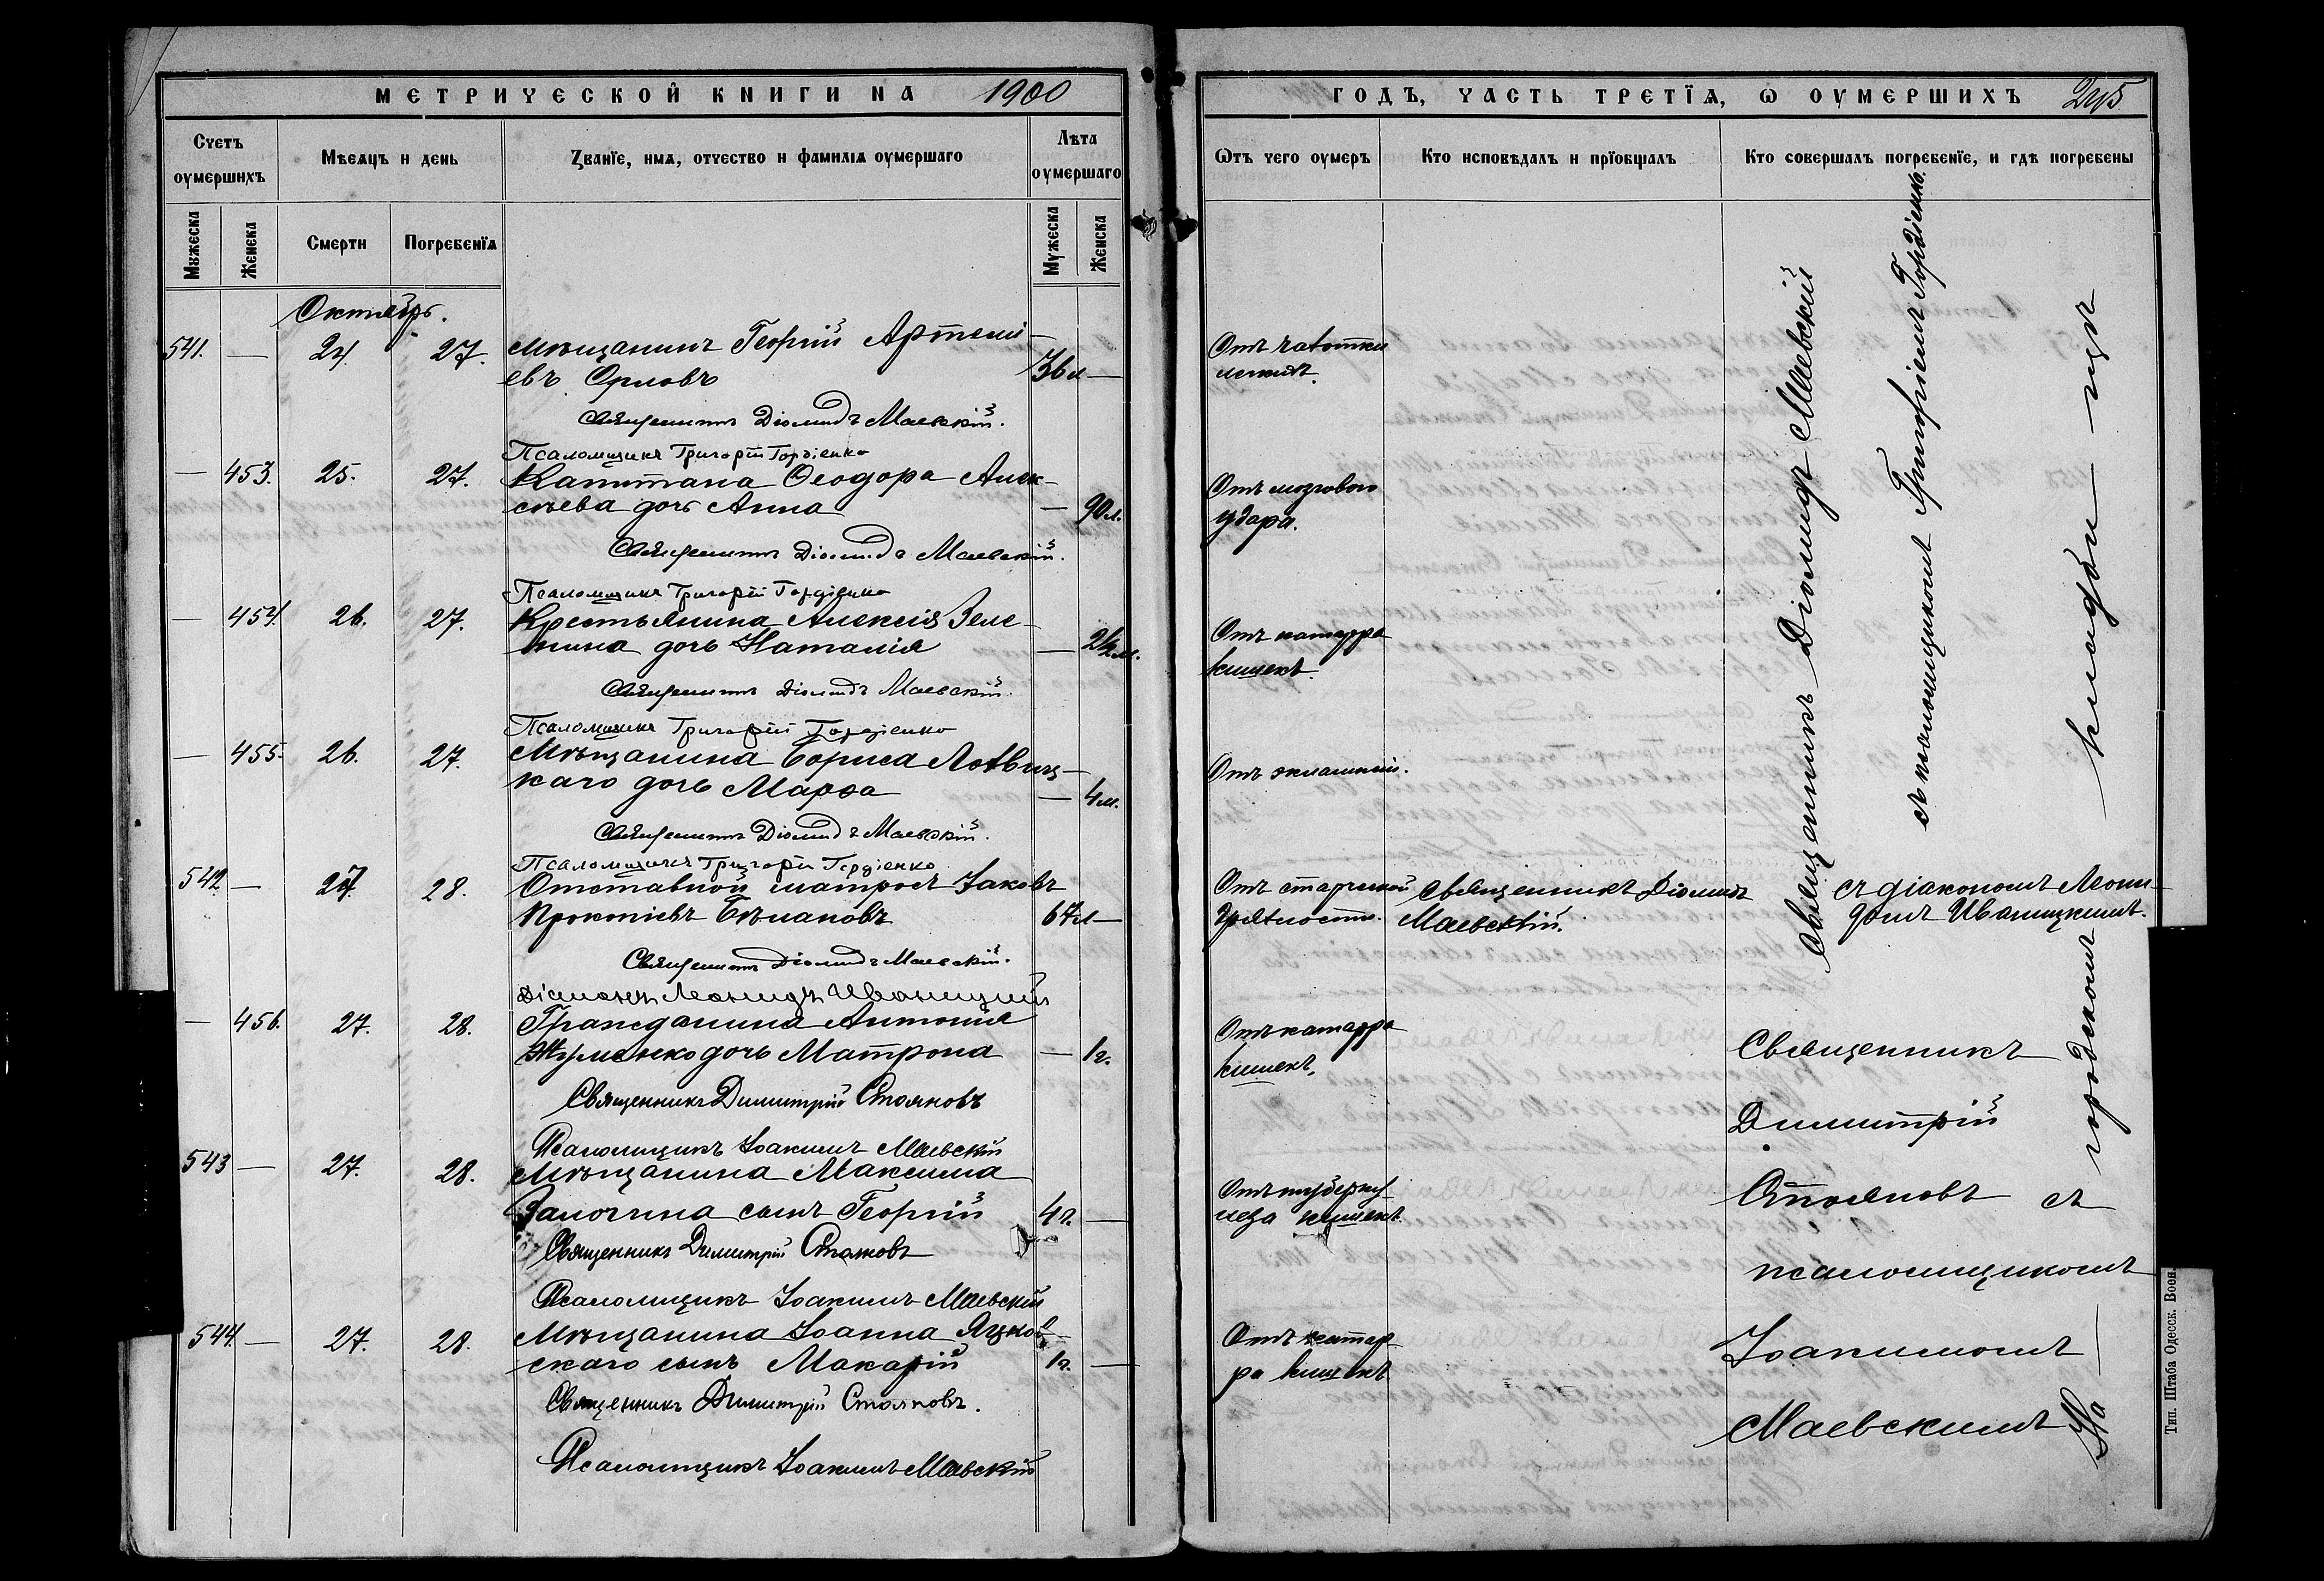 МЕТРИЧЕСКОЙ КНИГИ НА 1900
Счетъ оумершихъ
Мѣсяцъ и день
Званїе, имя, отчество и фамилїа оумершаго
Лѣта оумершаго
Мужеска
Женска
Смерти
Погребенїя
Мужеска
Женска
Октябрь.
541. — 24. 27. Мѣщанинъ Георгій Артемі-
евъ Орловъ 36 л —
Священникъ Діомидъ Маевскій.
Псаломщикъ Григорій Гордіенко
— 453. 25. 27. Капитана Ѳеодора Алек-
сѣева дочь Анна — 90 л.
Священникъ Діомидъ Маевскій.
Псаломщикъ Григорій Гордіенко
— 454. 26. 27. Крестьянина Алексія Зеле-
нина дочь Наталія — 2½ м.
Священникъ Діомидъ Маевскій.
Псаломщикъ Григорій Гордіенко
— 455. 26. 27. Мѣщанина Бориса
каго дочь Марѳа — 4 м.
Священникъ Діомидъ Маевскій.
Псаломщикъ Григорій Гордіенко
542 — 27. 28. Отставной матросъ Іаковъ
Прокопіевъ 67 л —
Священникъ Діомидъ Маевскій.
Діаконъ Леонидъ Иваницкій
— 456. 27. 28. Гражданина Антонія
дочь Матрона — 1 г.
Священникъ Димитрій Стояновъ
Псаломщикъ Іоакимъ Маевскій
543 — 27. 28. Мѣщанина Максима
сынъ Георгій 4 г. —
Священникъ Димитрій Стояновъ
Псаломщикъ Іоакимъ Маевскій
544. — 27. 28. Мѣщанина Іоанна Яцков-
скаго сынъ Макарій 1 г. —
Священникъ Димитрій Стояновъ.
Псаломщикъ Іоакимъ Маевскій
ГОДЪ, ЧАСТЬ ТРЕТЇЯ, Ѡ ОУМЕРШИХЪ 245
Ѿтъ чего оумеръ
Кто исповѣдалъ и прїобщалъ
Кто совершалъ погребенїе, и гдѣ погребены
Отъ чахотки
легкихъ.
Отъ мозгового
удара.
Отъ катарра
кишекъ.
Отъ эклампсіи.
Отъ старческой
дряхлости.
Священникъ Діомидъ
Маевскій.
съ діакономъ Леони-
домъ Иваницкимъ.
Отъ катарра
кишекъ.
Отъ туберку-
леза кишекъ.
Отъ катар-
ра кишекъ
Священникъ Діомидъ Маевскій
съ псаломщикомъ Григоріемъ Гордіенко.
Священникъ
Димитрій
Стояновъ съ
псаломщикомъ
Іоакимомъ
Маевскимъ
На — городскомъ кладби — щѣ
Тип. Штаба Одесск. Воен.